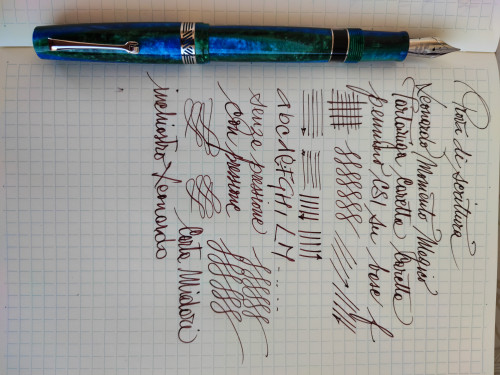 Prova di scrittura
Leonardo Momento Magico
Tartaruga Caretta Caretta
pennino su base f
abcdEFGHI LM.....
senza pressione
con pressione
Carta Midori
inchiostro Leonardo